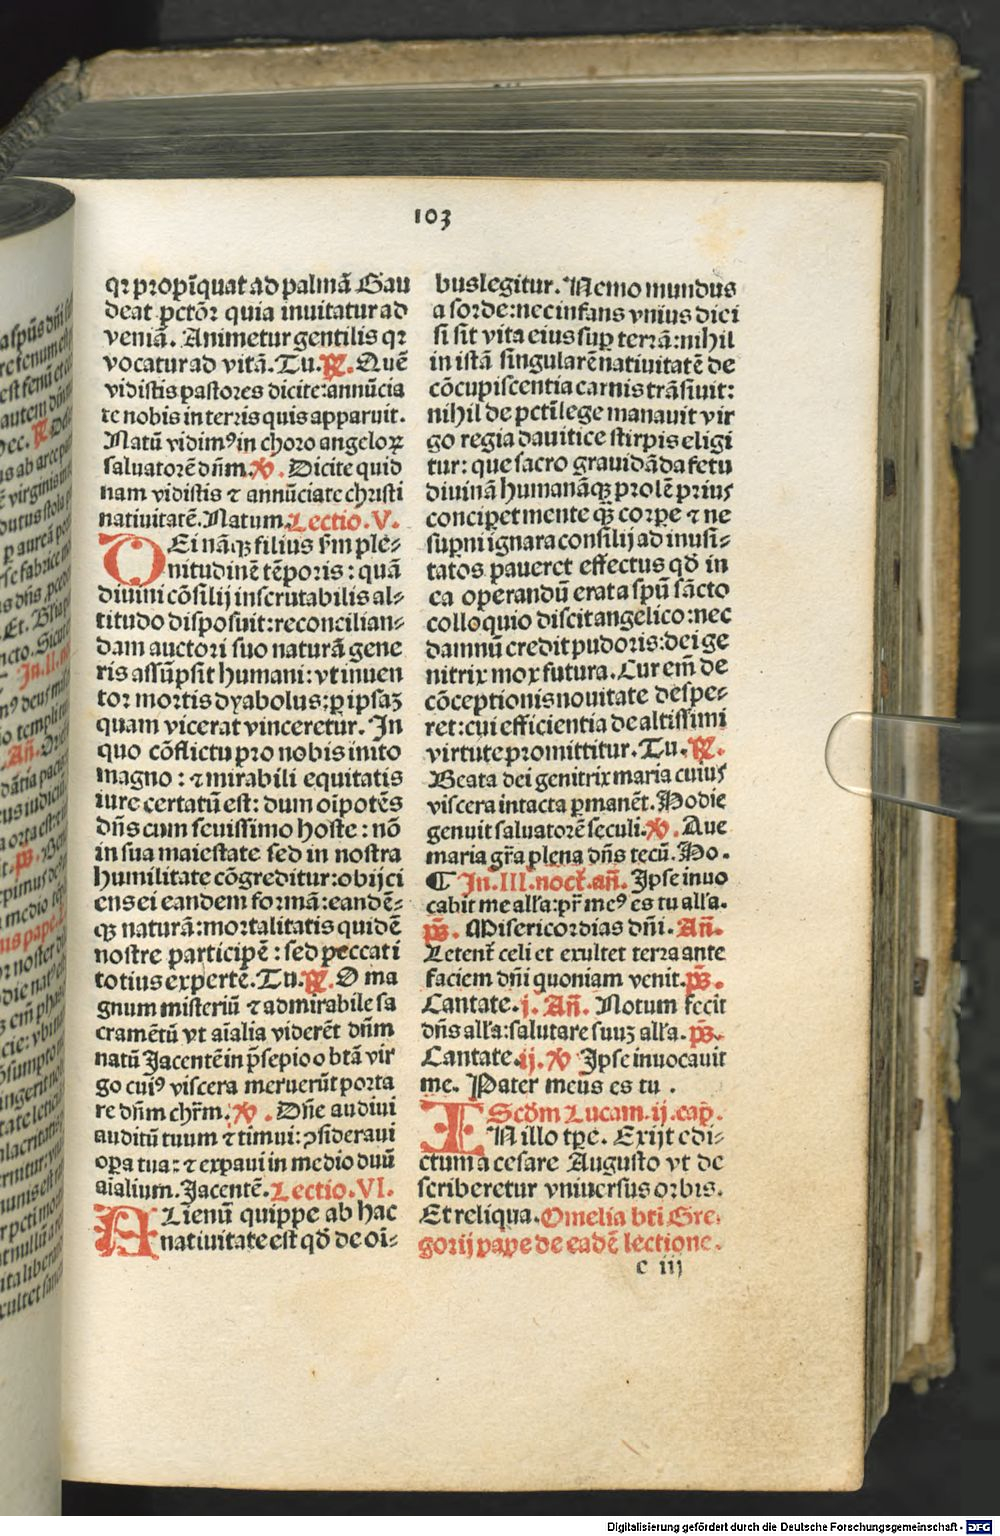 103
qꝛ propīquat ad palmā Gau
deat pctōꝛ quia inuitatur ad
veniā. Animetur gentilis qꝛ
vocatur ad vitā. Tu. ℟. Quē
vidistis pastores dicite: annūcia
te nobis in terris quis apparuit.
Natū vidimꝰ in choro angeloꝝ
saluatorē dn̄m. ℣. Dicite quid
nam vidistis ⁊ annūciate christi
natiuitatē. Natum. Lectio. V.
DEi nāqꝫ filius ẜm ple⸗
nitudinē tēporis: quā
diuini cōsilij inscrutabilis al⸗
titudo disposuit: reconcilian⸗
dam auctori suo naturā gene
ris assūpsit humani: vt inuen
tor mortis dyabolus: ꝑ ipsaꝫ
quam vicerat vinceretur. In
quo cōflictu pro nobis inito
magno: ⁊ mirabili equitatis
iure certatū est: dum oīpotēs
dn̄s cum seuissimo hoste: nō
in sua maiestate sed in nostra
humilitate cōgreditur: obijci
ens ei eandem formā: eandē⸗
qꝫ naturā: mortalitatis quidē
nostre participē: sed peccati
totius expertē. Tu. ℟. O ma
gnum misteriū ⁊ admirabile sa
cramētū vt aīalia viderēt dn̄m
natū Jacentē in p̄sepio o btā vir
go cuiꝰ viscera meruerūt porta
re dn̄m chr̄m. ℣. Dn̄e audiui
auditū tuum ⁊ timui: ꝯsideraui
oꝑa tua: ⁊ expaui in medio duū
aīalium. Jacentē. Lectio. VI.
ALienū quippe ab hac
natiuitate est qd̄ de oī⸗
bus legitur. Nemo mundus
a sorde: nec infans vnius diei
si sit vita eius suꝑ terrā: nihil
in istā singularē natiuitatē de
cōcupiscentia carnis trāsiuit:
nihil de pcti lege manauit vir
go regia dauitice stirpis eligi
tur: que sacro grauidāda fetu
diuinā humanāqꝫ prolē prius
conciꝑet mente qꝫ corꝑe ⁊ ne
suꝑni ignara consilij ad inusi⸗
tatos paueret effectus qd̄ in
ea operandū erat a spū sācto
colloquio discit angelico: nec
damnū credit pudoris: dei ge
nitrix mox futura. Cur em̄ de
cōceptionis nouitate despe⸗
ret: cui efficientia de altissimi
virtute promittitur. Tu. ℟.
Beata dei genitrix maria cuius
viscera intacta ꝑmanēt. Hodie
genuit saluatorē seculi. ℣. Aue
maria gr̄a plena dn̄s tecū. Ho.
¶ In. III. noct̄. an̄. Ipse inuo
cabit me all'a: pr̄ meꝰ es tu all'a.
ps̄. Misericordias dn̄i. An̄.
Letent̄ celi et exultet terra ante
faciem dn̄i quoniam venit. ps̄.
Cantate. j. An̄. Notum fecit
dn̄s all'a: salutare suuꝫ all'a. ps̄.
Cantate. ij. ℣ Ipse inuocauit
me. Pater meus es tu .
Scd̄m Lucam. ij. cap̄.
IN illo tꝑe. Exijt edi⸗
ctum a cesare Augusto vt de
scriberetur vniuersus orbis.
Et reliqua. Omelia bti Gre.
gorij pape de eadē lectione.
c iij
Digitalisierung gefördert durch die Deutsche Forschungsgemeinschaft - DFG